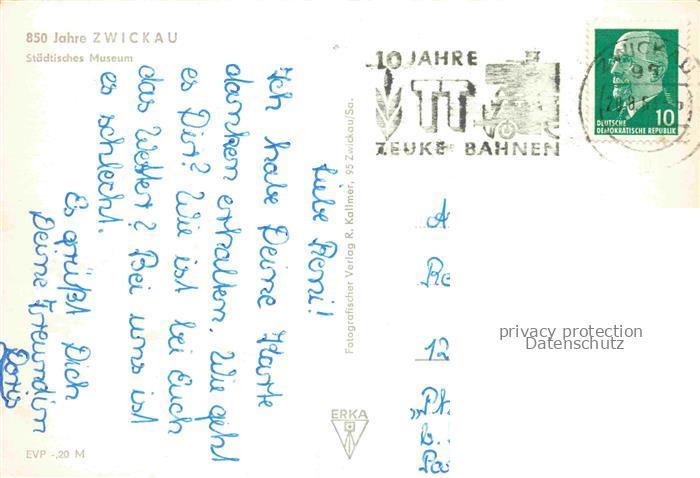 850 Jahre ZWICKAU
Städtisches Museum
Liebe Roni!
Ich habe Deine Karte
danken erhalten. Wie geht
es Dir? Wie ist bei Euch
das Wetter? Bei uns ist
es schlecht.
Es grüßt Dich
Deine Freundin
Doris
EVP -,20 M
Fotografischer Verlag R. Kallmer, 95 Zwickau/Sa.
ERKA
10 JAHRE
TT
ZEUKE BAHNEN
95
DEUTSCHE
DEMOKRATISCHE REPUBLIK
10
A
Re
12
Pi.
b.
Pa
privacy protection
Datenschutz